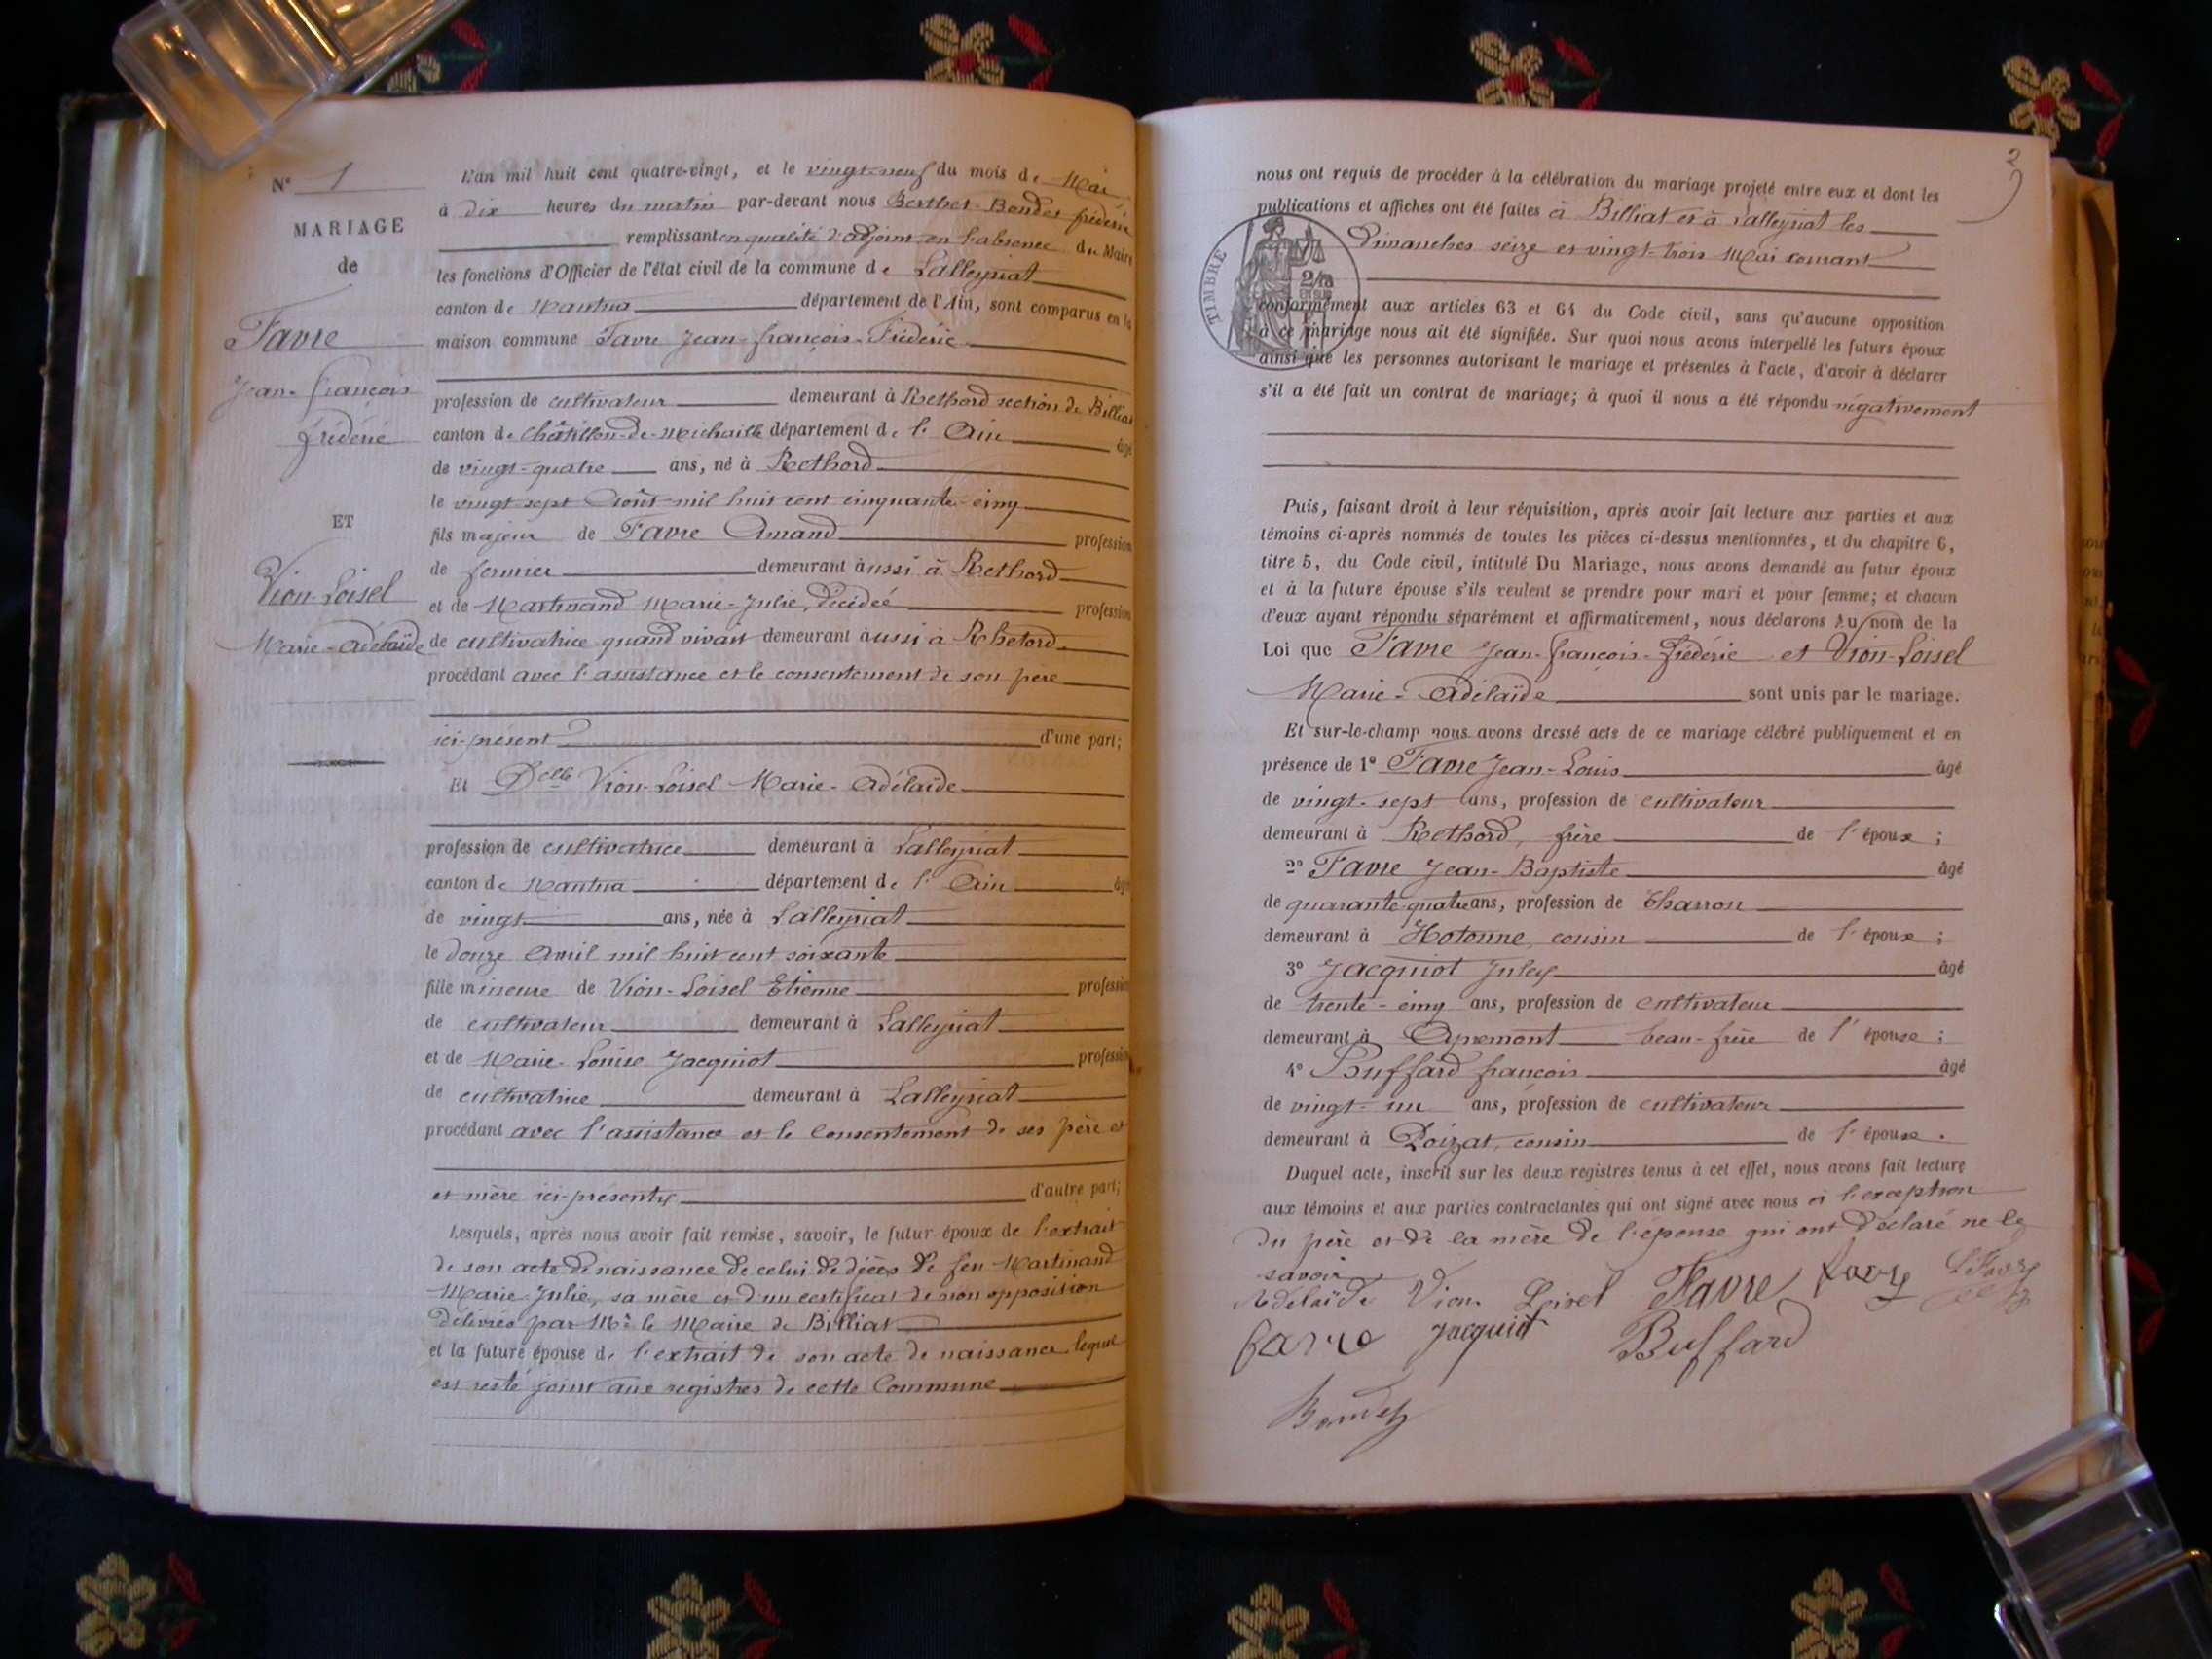 N° 1
MARIAGE
de
Favre
Jean-françois
frédéric
ET
Vion-Loisel
Marie-Adélaïde
L'an mil huit cent quatre-vingt, et le vingt-neuf du mois de Mai
à dix heures du matin par-devant nous Berthet-Bondet frédéric
remplissant en qualité d'adjoint en l'absence du Maire
les fonctions d'Officier de l'état civil de la commune de Lalleyriat
canton de Nantua département de l'Ain, sont comparus en la
maison commune Favre Jean-françois-Frédéric
profession de cultivateur demeurant à Rethord section de Billiat
canton de Châtillon-de-Michaille département de l'Ain âgé
de vingt-quatre ans, né à Rethord
le vingt sept Août mil huit cent cinquante-cinq
fils majeur de Favre Amand profession
de fermier demeurant aussi à Rethord
et de Martinand Marie-Julie, décédée profession
de cultivatrice quand vivait demeurant aussi à Rhetord
procédant avec l'assistance et le consentement de son père
ici-présent d'une part;
Et Delle Vion-Loisel Marie-Adélaïde
profession de cultivatrice demeurant à Lalleyriat
canton de Nantua département de l'Ain âgé
de vingt ans, née à Lalleyriat
le douze Avril mil huit cent soixante
fille mineure de Vion-Loisel Etienne profession
de cultivateur demeurant à Lalleyriat
et de Marie-Louise Jacquiot profession
de cultivatrice demeurant à Lalleyriat
procédant avec l'assistance et le Consentement de ses père et
et mère ici-présents d'autre part;
Lesquels, après nous avoir fait remise, savoir, le futur époux de l'extrait
de son acte de naissance de celui de décès de feu Martinand
Marie-Julie, sa mère et d'un certificat de non opposition
délivrés par Mr le Maire de Billiat
et la future épouse de l'extrait de son acte de naissance lequel
est resté joint aux registres de cette Commune
2
nous ont requis de procéder à la célébration du mariage projeté entre eux et dont les
publications et affiches ont été faites à Billiat et à Lalleyriat les
Dimanches seize et vingt-trois Mai courant
TIMBRE
conformément aux articles 63 et 64 du Code civil, sans qu'aucune opposition
à ce mariage nous ait été signifiée. Sur quoi nous avons interpellé les futurs époux
ainsi que les personnes autorisant le mariage et présentes à l'acte, d'avoir à déclarer
s'il a été fait un contrat de mariage; à quoi il nous a été répondu négativement
Puis, faisant droit à leur réquisition, après avoir fait lecture aux parties et aux
témoins ci-après nommés de toutes les pièces ci-dessus mentionnées, et du chapitre 6,
titre 5, du Code civil, intitulé Du Mariage, nous avons demandé au futur époux
et à la future épouse s'ils veulent se prendre pour mari et pour femme; et chacun
d'eux ayant répondu séparément et affirmativement, nous déclarons au nom de la
Loi que Favre Jean-françois-frédéric et Vion-Loisel
Marie-Adélaïde sont unis par le mariage.
Et sur-le-champ nous avons dressé acte de ce mariage célébré publiquement et en
présence de 1° Favre Jean-Louis âgé
de vingt-sept ans, profession de cultivateur
demeurant à Rethord, frère de l'époux;
2° Favre Jean-Baptiste âgé
de quarante quatre ans, profession de Charron
demeurant à Hotonne, cousin de l'époux;
3° Jacquiot Jules âgé
de trente-cinq ans, profession de cultivateur
demeurant à Apremont beau-frère de l'épouse;
4° Buffard françois âgé
de vingt-un ans, profession de cultivateur
demeurant à Poizat, cousin de l'épouse.
Duquel acte, inscrit sur les deux registres tenus à cet effet, nous avons fait lecture
aux témoins et aux parties contractantes qui ont signé avec nous à l'exception
du père et de la mère de l'épouse qui ont déclaré ne le
savoir
Adelaïde Vion Loisel Favre favre
favre Jacquiot Buffard
Bondet